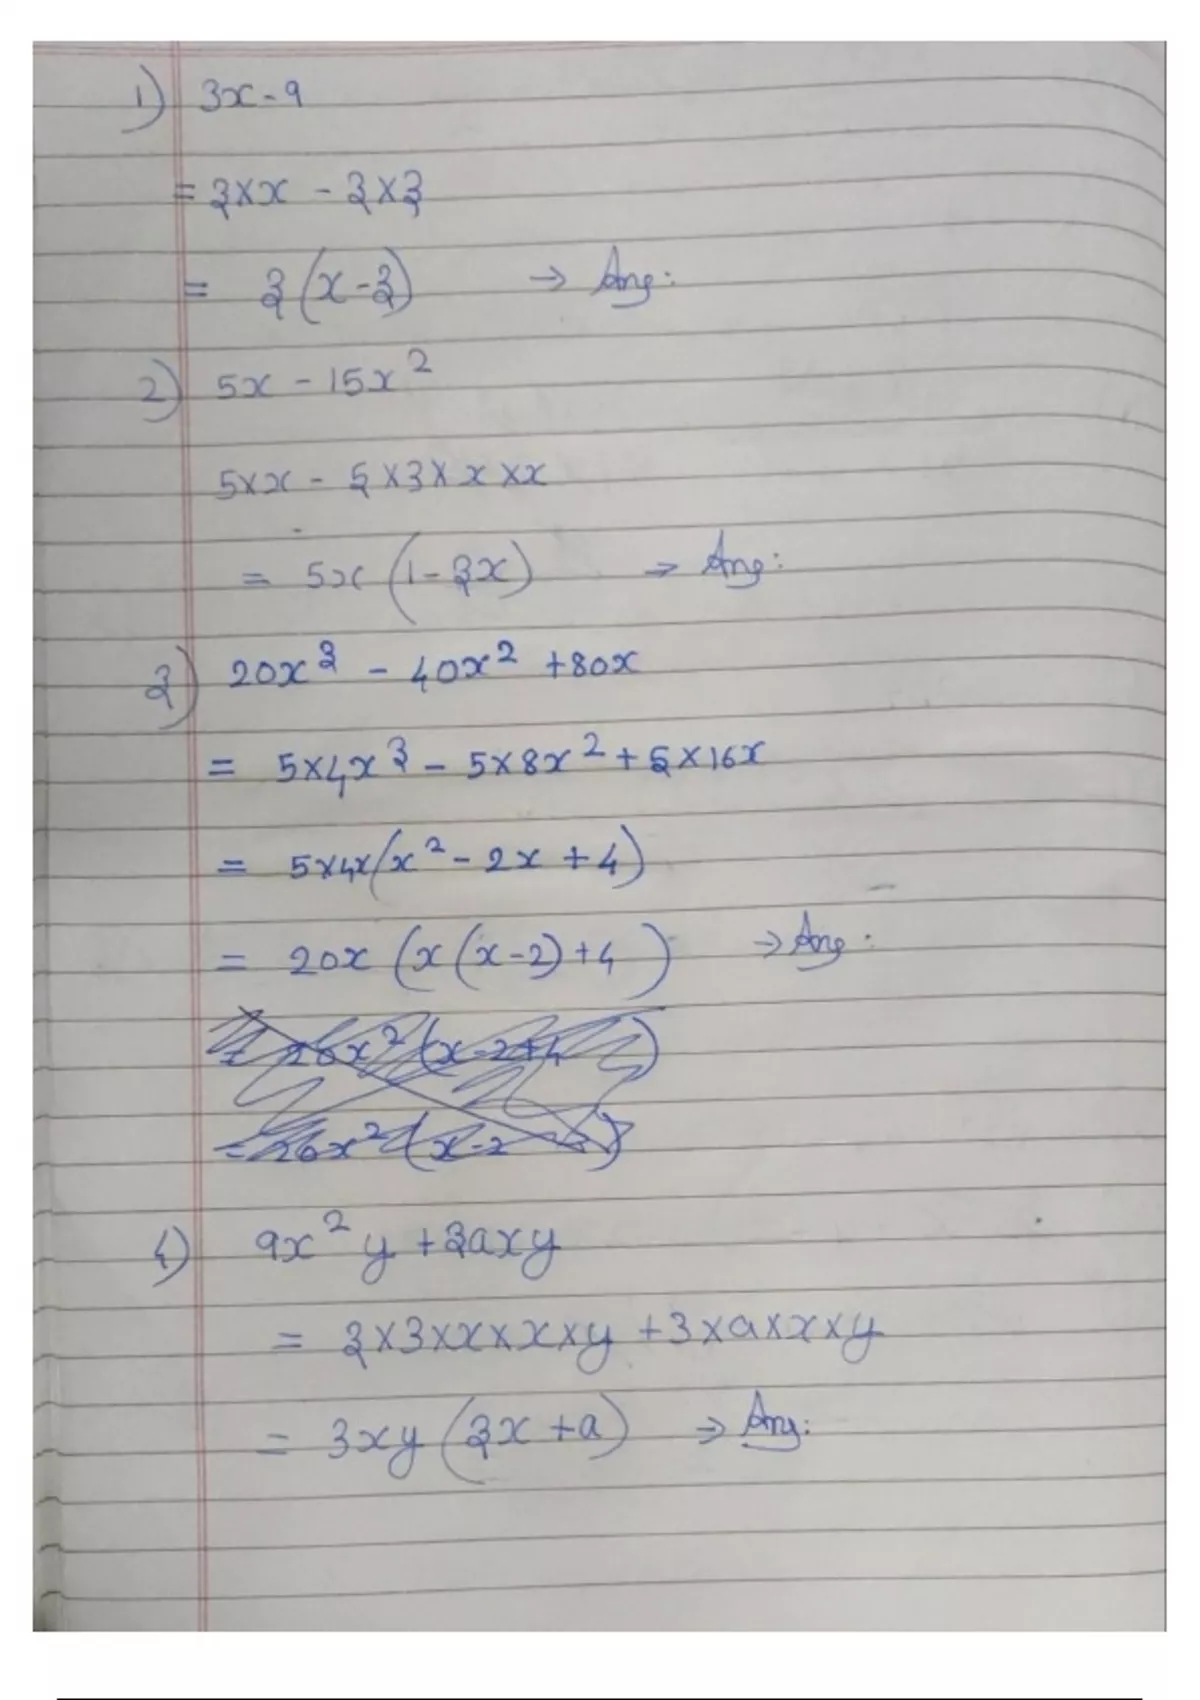 1) 3x - 9
= 3×x - 3×3
= 3(x-3) → Ans:
2) 5x - 15x²
5×x - 5×3×x×x
= 5x(1-3x) → Ans:
3) 20x³ - 40x² + 80x
= 5×4x³ - 5×8x² + 5×16x
= 5×4x(x² - 2x + 4)
= 20x(x(x-2)+4) → Ans:
= 20x²(x-2+4)
= 20x²(x-2
4) 9x²y + 3axy
= 3×3×x×x×y + 3×a×x×y
= 3xy(3x+a) → Ans: